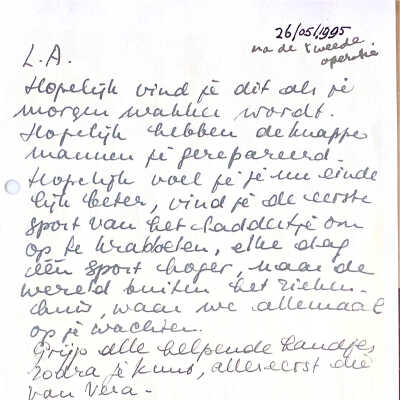 26/05/1995
na de tweede
operatie
L.A.
Hopelijk vind je dit als je
morgen wakker wordt.
Hopelijk hebben de knappe
mannen je gerepareerd.
Hopelijk voel je je nu einde
lijk beter, vind je de eerste
sport van het laddertje om
op te krabbelen, elke dag
één sport hoger, naar de
wereld buiten het zieken-
huis, waar we allemaal
op je wachten.
Grijp alle helpende handjes
zodra je kunt, allereerst die
van Vera -